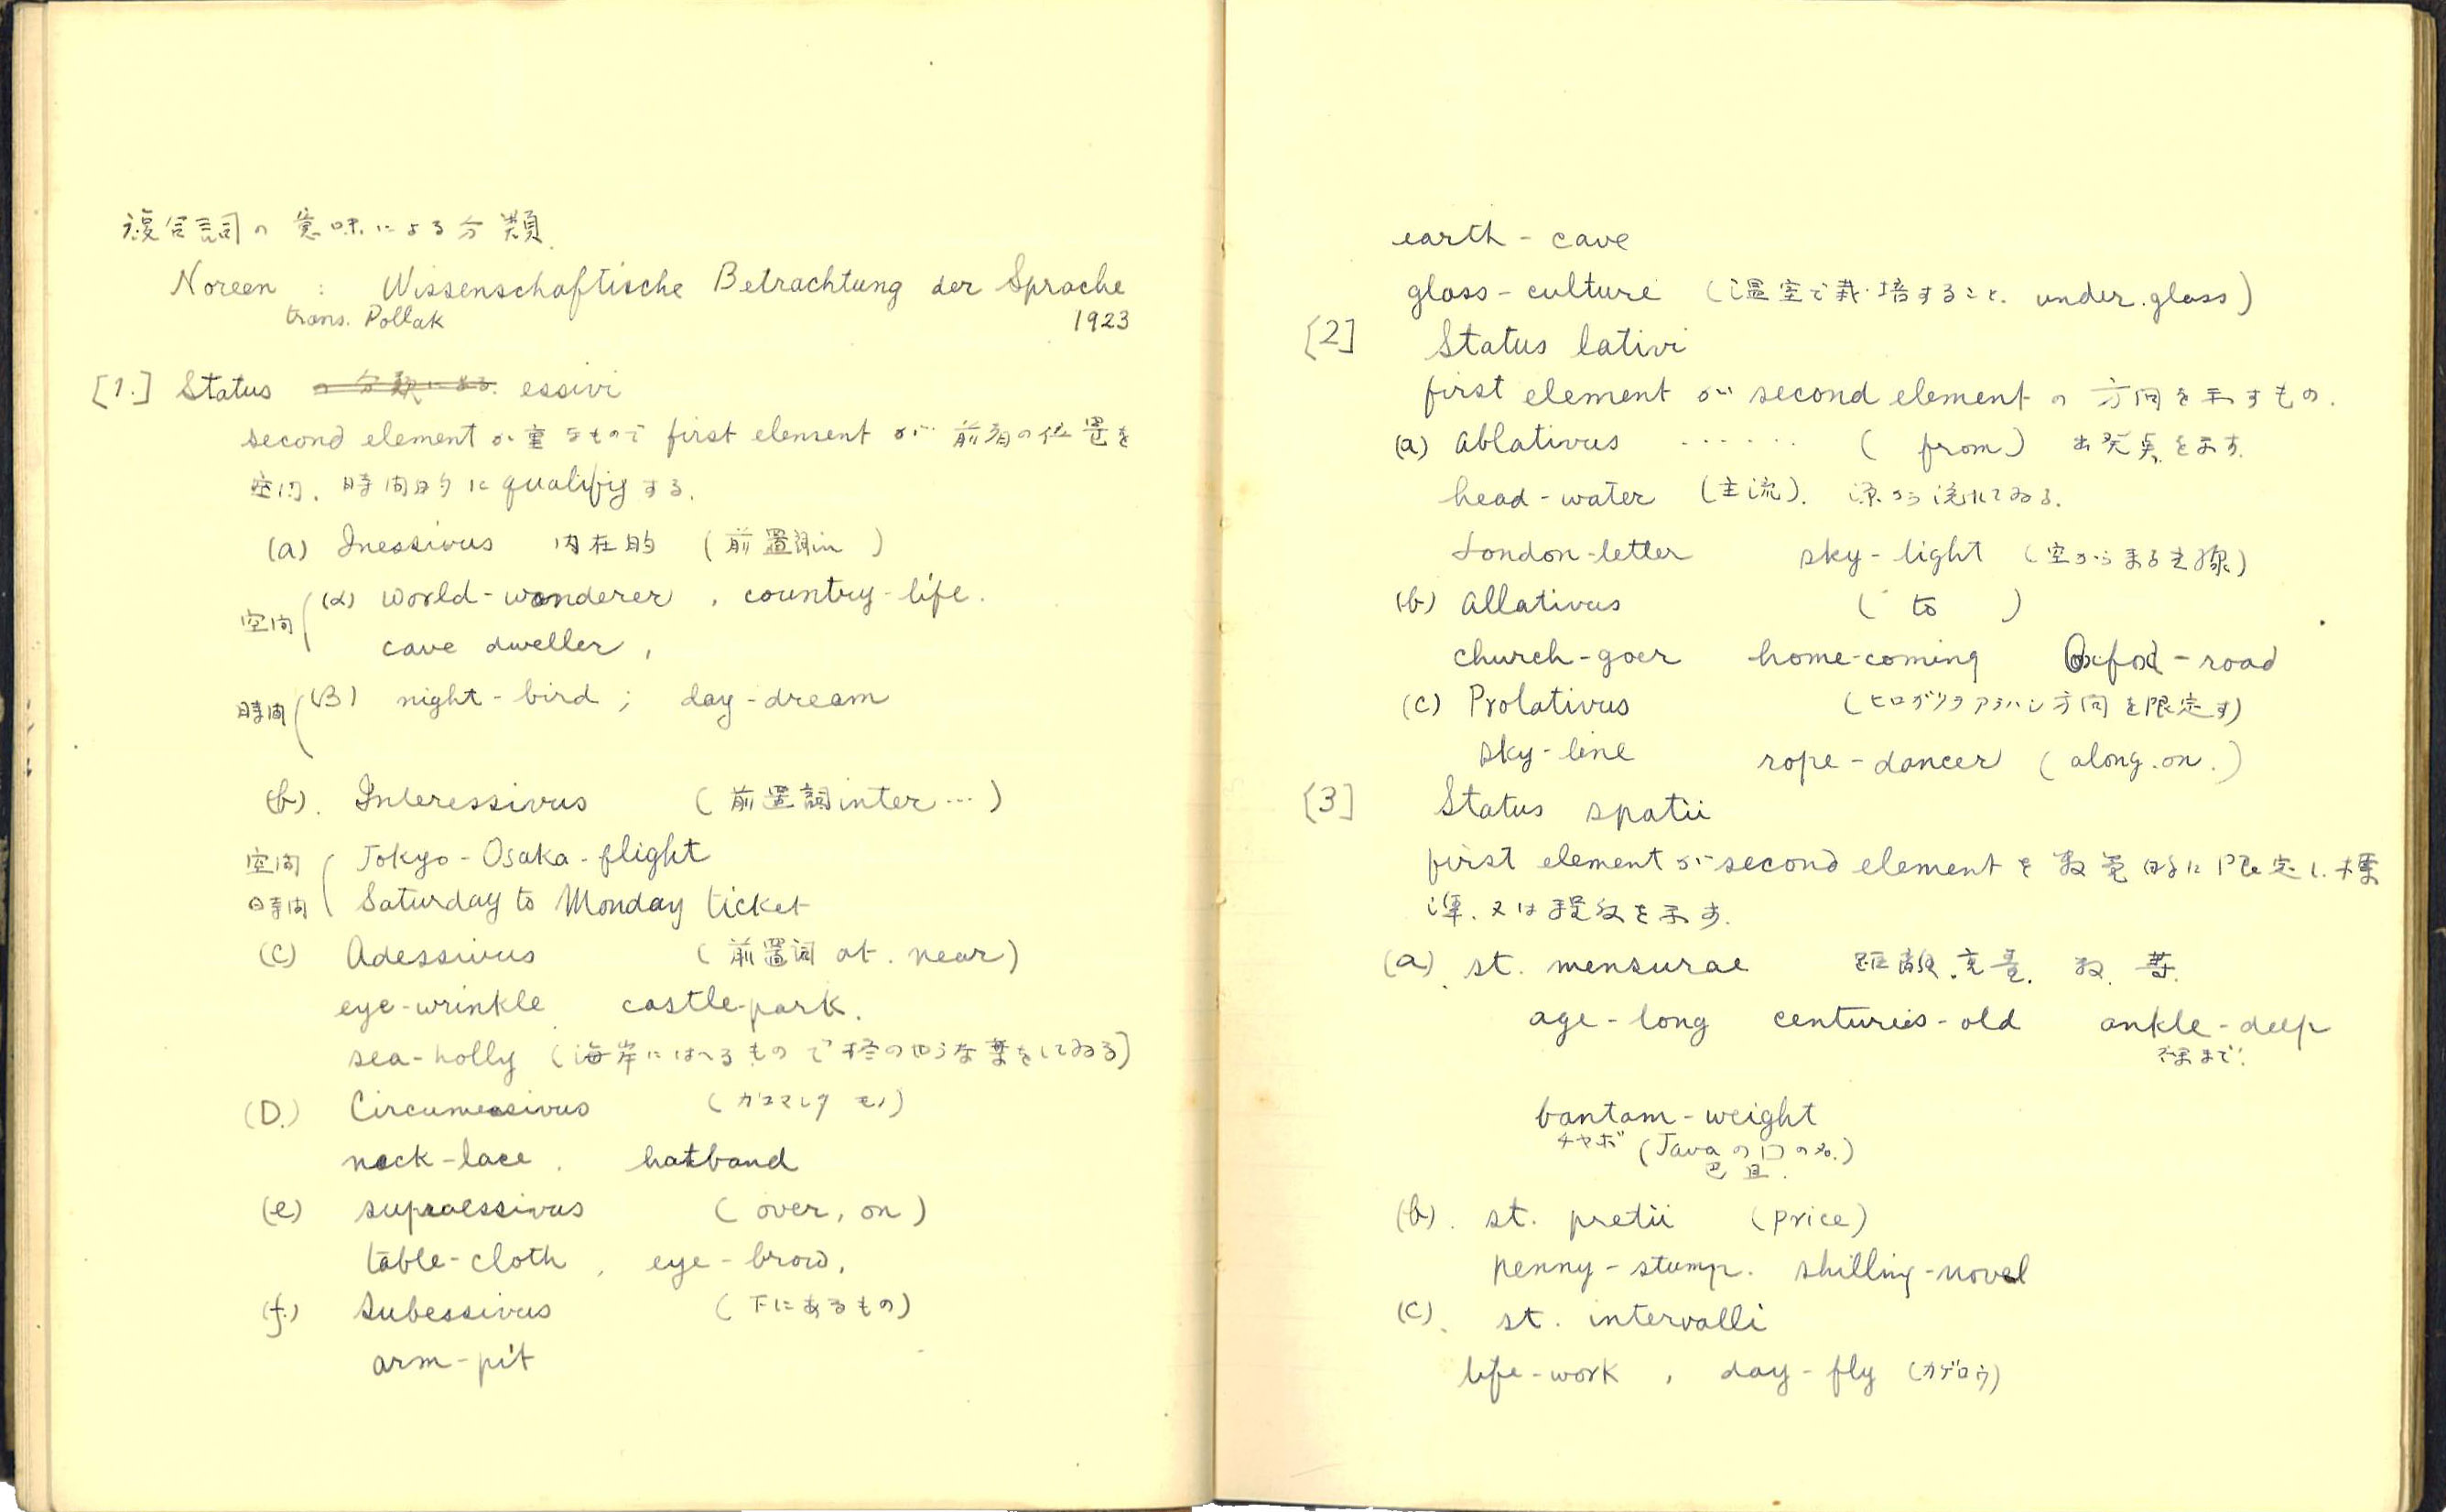 複合詞の意味による分類.
Noreen : Wissenschaftische Betrachtung der Sprache
trans. Pollak 1923
[1.] Status essivi
second element が重なもので first element が 前者の位置を
空間、時間的に qualifiy する.
(a) Inessivus 内在的 (前置詞in )
空間 (α) world-wanderer , country-life.
cave dweller ,
時間 (β) night-bird ; day-dream
(b). Interessivus (前置詞inter…)
空間 Tokyo-Osaka-flight
時間 Saturday to Monday ticket
(c) Adessivus (前置詞 at. near)
eye-wrinkle castle-park.
sea-holly (海岸にはへるもので柊のやうな葉をしてゐる)
(D.) Circumessivus (カコマレタ モノ)
neck-lace . hatband
(e) supraessivus ( over, on )
table-cloth , eye-brow,
(f.) Subessivus ( 下にあるもの)
arm-pit
earth-cave
glass-culture (温室で栽培すること. under.glass)
[2] Status lativi
first element が second element の 方向を示すもの.
(a) Ablativus ...... ( from ) 出発点を示す.
head-water (主流). 源から流れてゐる.
London-letter sky-light (空から来る光線)
(b) Allativus ( to )
church-goer home-coming Oxford-road
(c) Prolativus (ヒロガリヲアラハシ方向を限定す)
sky-line rope-dancer (along.on.)
[3] Status spatii
first element が second element を 数量的に限定し、標
準、又は程度を示す.
(a). st. mensurae 距離.容量. 数. 等.
age-long centuries-old ankle-deep
踝まで.
bantam-weight
チャボ (Javaの の名.)
(b). st. pretii (price)
penny-stamp. shilling-novel
(c). st. intervalli
life-work , day-fly (カゲロウ)